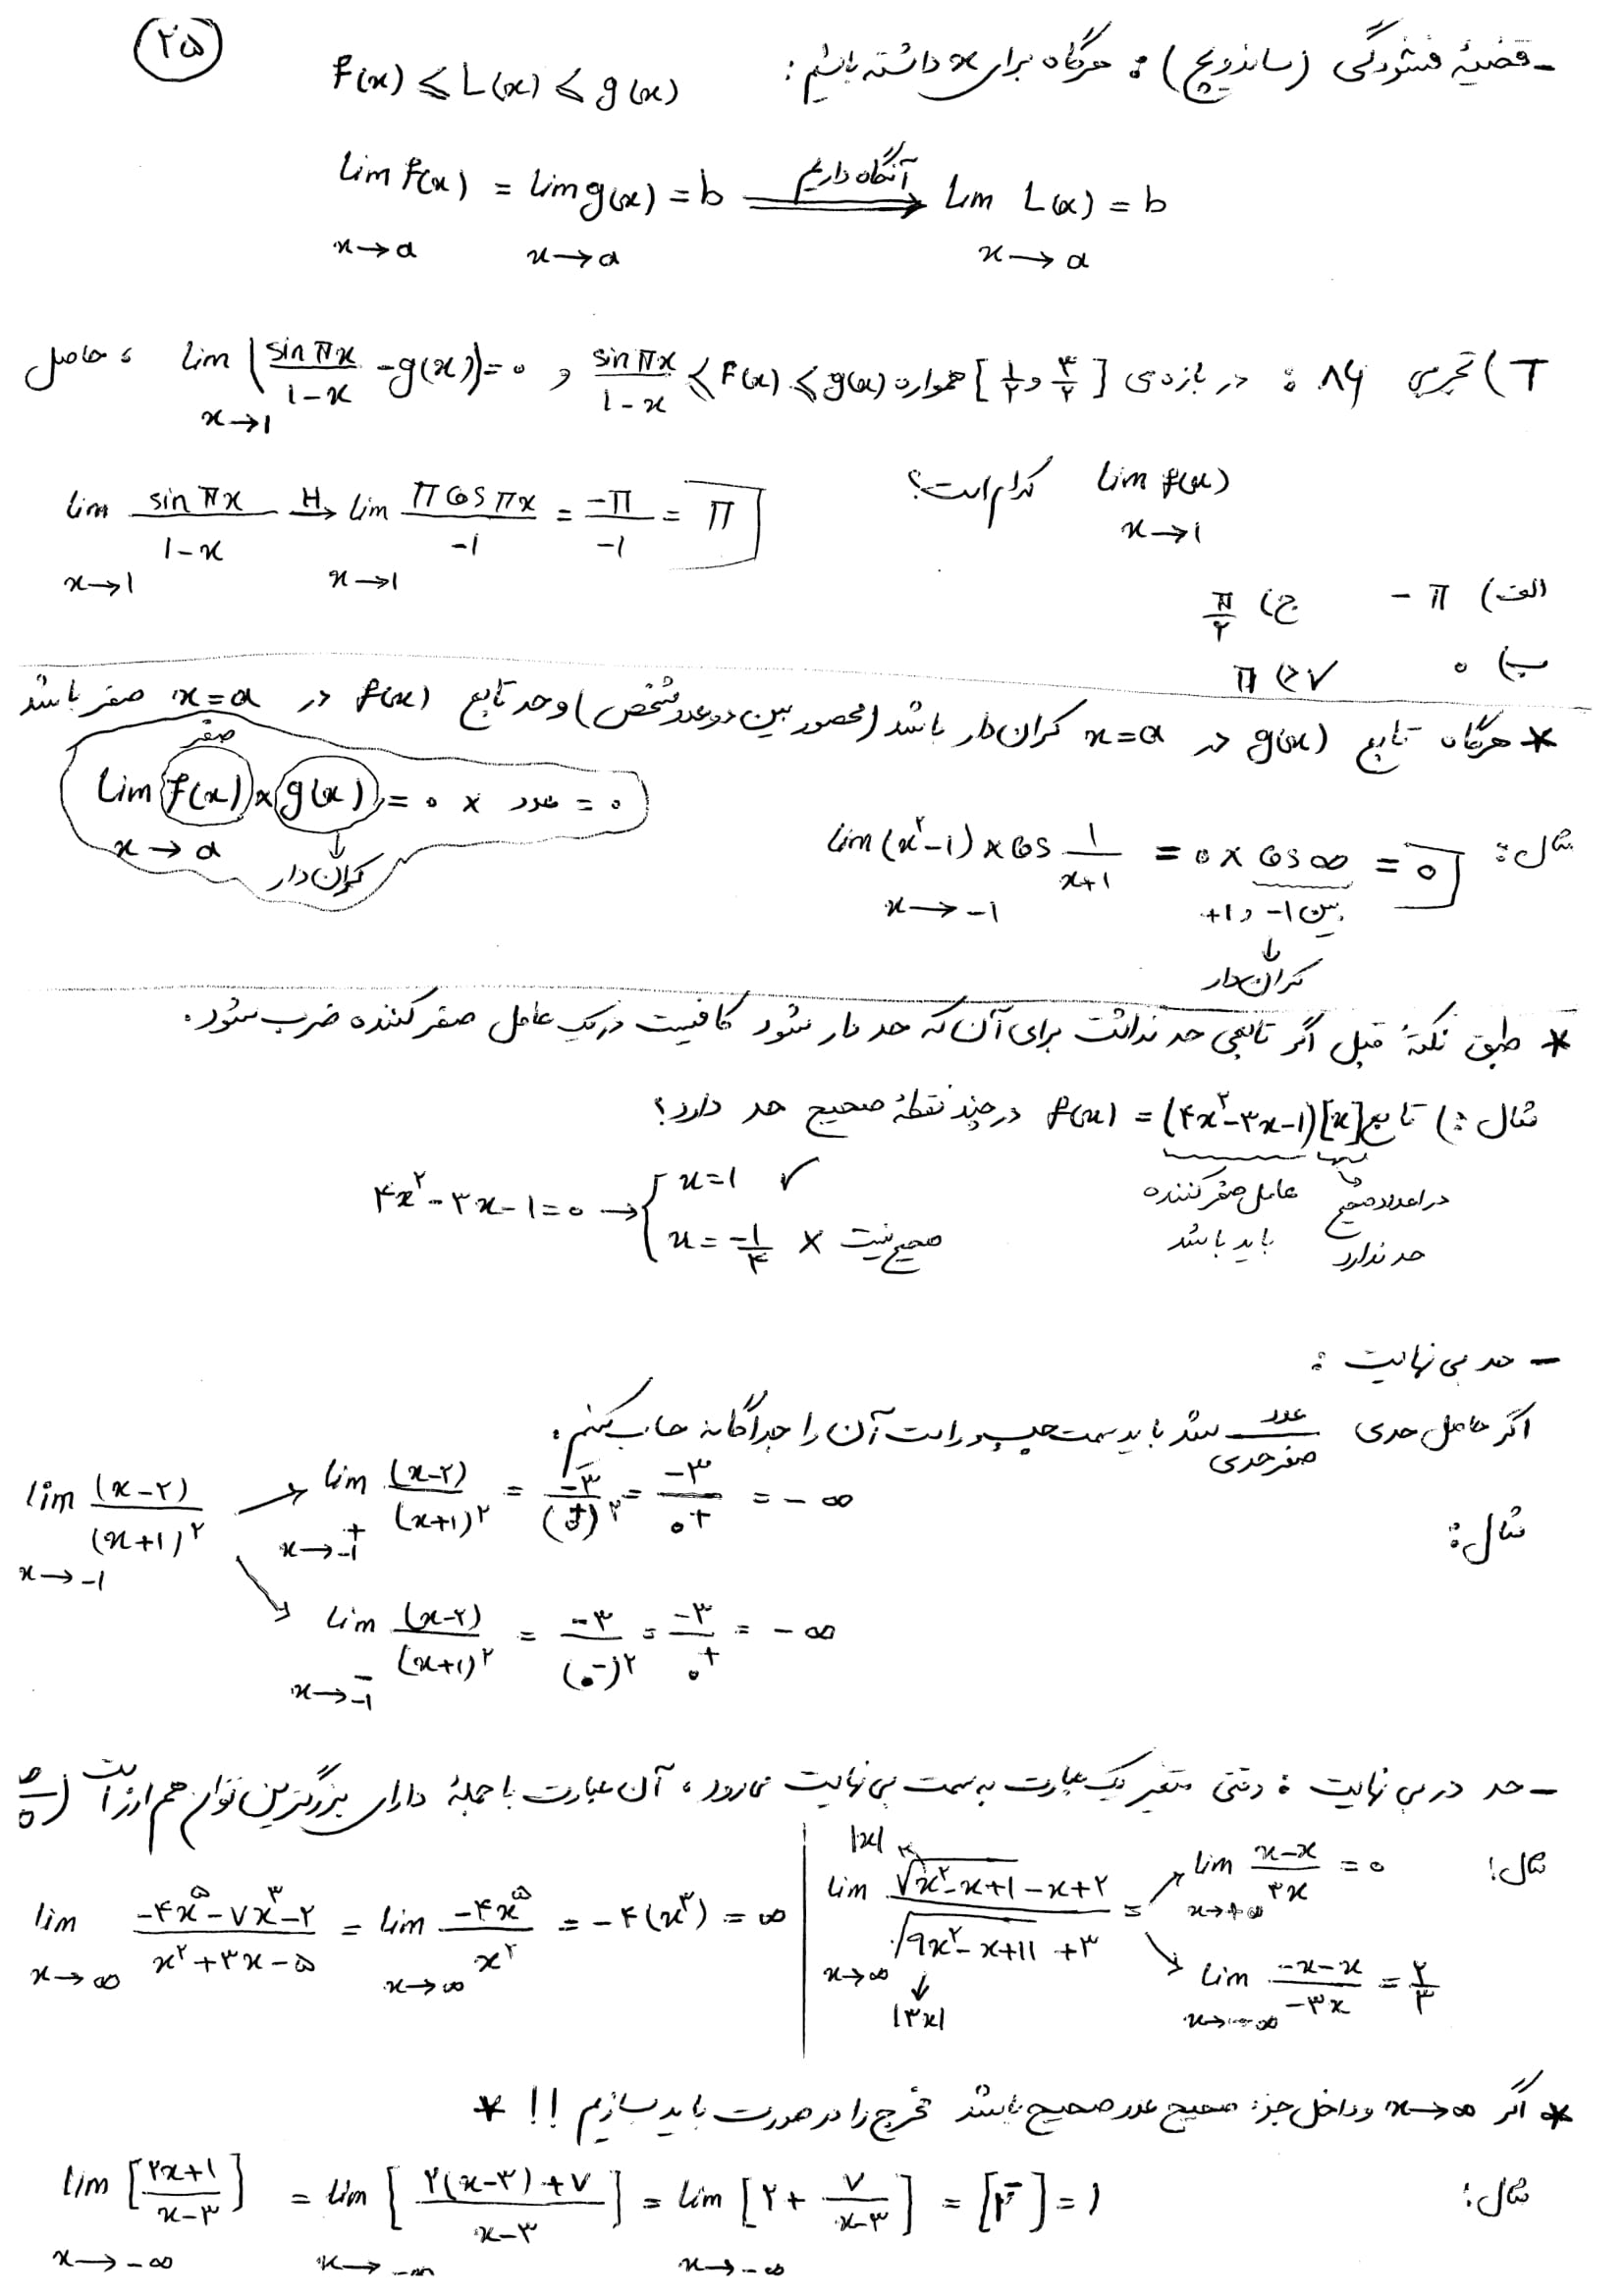 ۲۵
- قضیهٔ فشردگی (ساندویچ) : هرگاه برای x داشته باشیم : f(x) ⩽ L(x) ⩽ g(x)
lim f(x) = lim g(x) = b آنگاه داریم ⟹ Lim L(x) = b
x→a x→a x→a
T) تجربی ۸۴ : در بازه‌ی [۱/۲ و ۳/۲] همواره sin πx/(1-x) ⩽ f(x) ⩽ g(x) و lim (sin πx/(1-x) - g(x)) = 0 ، حاصل
x→1
lim f(x) کدام است؟
x→1
lim sin πx/(1-x) H→ lim π cos πx/-1 = -π/-1 = π
x→1 x→1
الف) -π ج) π/۲
ب) ۰ ✓ د) π
* هرگاه تابع g(x) در x=a کران‌دار باشد (محصور بین دو عدد مشخص) و حد تابع f(x) در x=a صفر باشد
صفر
lim f(x) × g(x) = ۰ × عدد = ۰
x→a
کران‌دار
مثال : lim (x²-1) × cos 1/(x+1) = ۰ × cos ∞ = ۰
x→-1
بین -۱ و +۱
↓
کران‌دار
* طبق نکتهٔ قبل اگر تابعی حد نداشت برای آن که حد دار شود کافیست در یک عامل صفر کننده ضرب شود .
مثال :) تابع f(x) = (۴x²-۳x-1)[x] در چند نقطهٔ صحیح حد دارد؟
در اعداد صحیح حد ندارد
عامل صفر کننده باید باشد
۴x²-۳x-1=۰ → { x=1 ✓
x = -1/۴ × صحیح نیست
- حد بی نهایت :
اگر حاصل حدی عدد/صفر حدی شد باید سمت چپ و راست آن را جداگانه حساب کنیم .
مثال :
lim (x-۲)/(x+1)² → lim (x-۲)/(x+1)² = -۳/(۰⁺)² = -۳/۰⁺ = -∞
x→-1 x→-1⁺
↘ lim (x-۲)/(x+1)² = -۳/(۰⁻)² = -۳/۰⁺ = -∞
x→-1⁻
- حد در بی نهایت : وقتی متغیر یک عبارت به سمت بی نهایت می‌رود ، آن عبارت با جملهٔ دارای بزرگترین توان هم ارز است (∞/∞)
مثال :
lim (-۴x⁵-۷x³-۲)/(x²+۳x-۵) = lim -۴x⁵/x² = -۴(x³) = ∞
x→∞ x→∞
|x|
lim (√(x²-x+1) -x+۲)/(√(9x²-x+11) +۳) = ↗ lim (x-x)/۳x = ۰
x→∞ x→+∞
|۳x|
↘ lim (-x-x)/-۳x = ۲/۳
x→-∞
* اگر x→∞ و داخل جزء صحیح عدد صحیح باشد مخرج را در صورت باید بسازیم !! *
مثال :
lim [(۲x+1)/(x-۳)] = lim [(۲(x-۳)+۷)/(x-۳)] = lim [۲ + ۷/(x-۳)] = [۲⁻] = 1
x→-∞ x→-∞ x→-∞